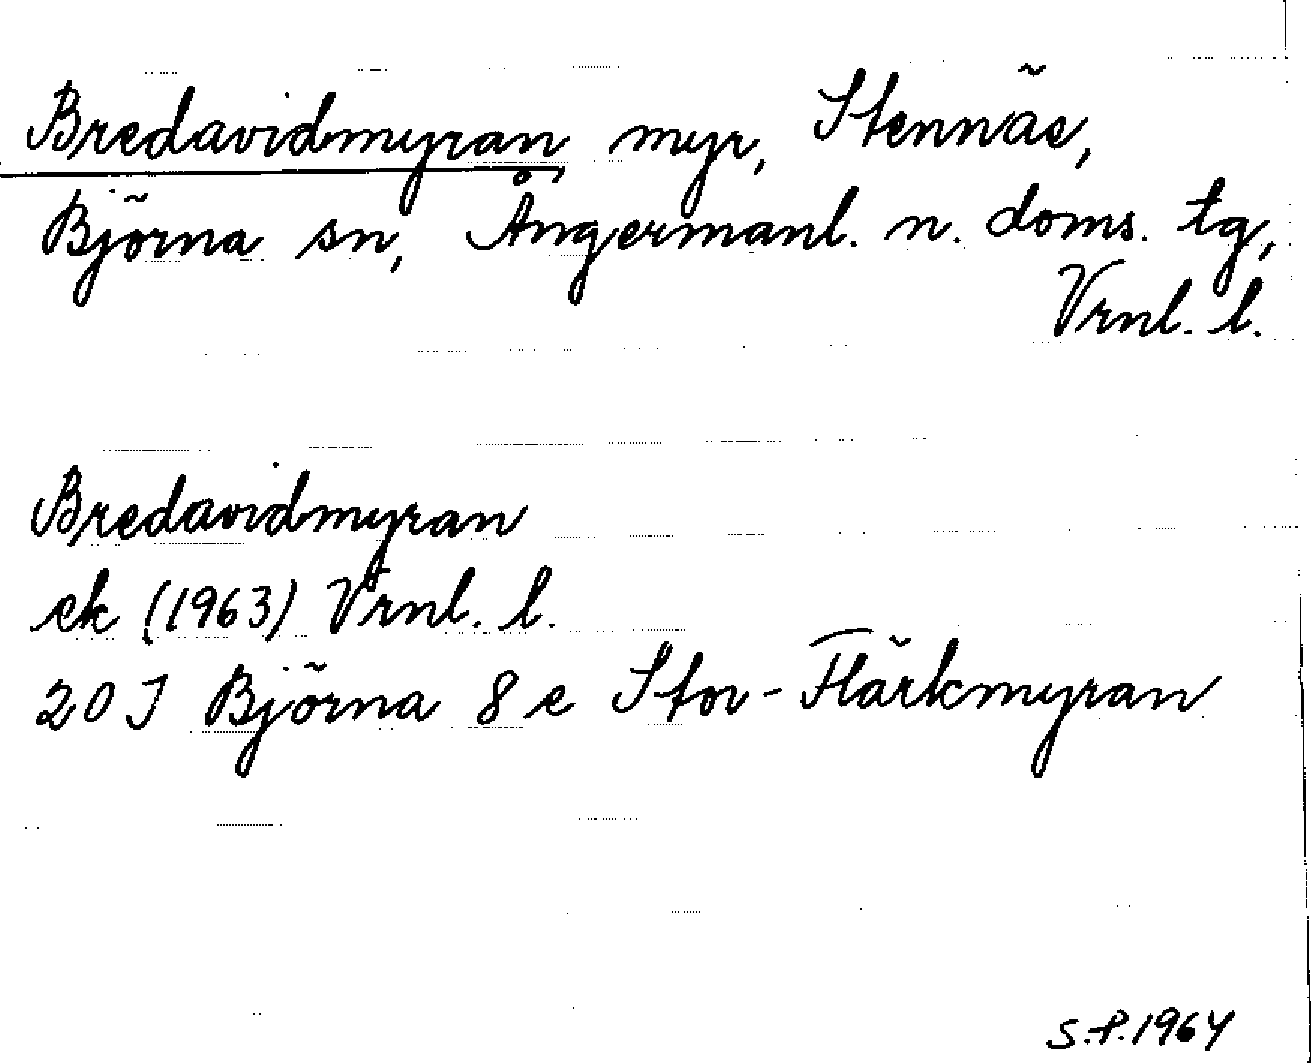 Bredavidmyran myr, Stennäs,
Björna sn, Ångermanl. n. doms. tg,
Vrnl. l.
Bredavidmyran
ek (1963) Vrnl. l.
20 J Björna 8 e Stor-Flärkmyran
S.P. 1964